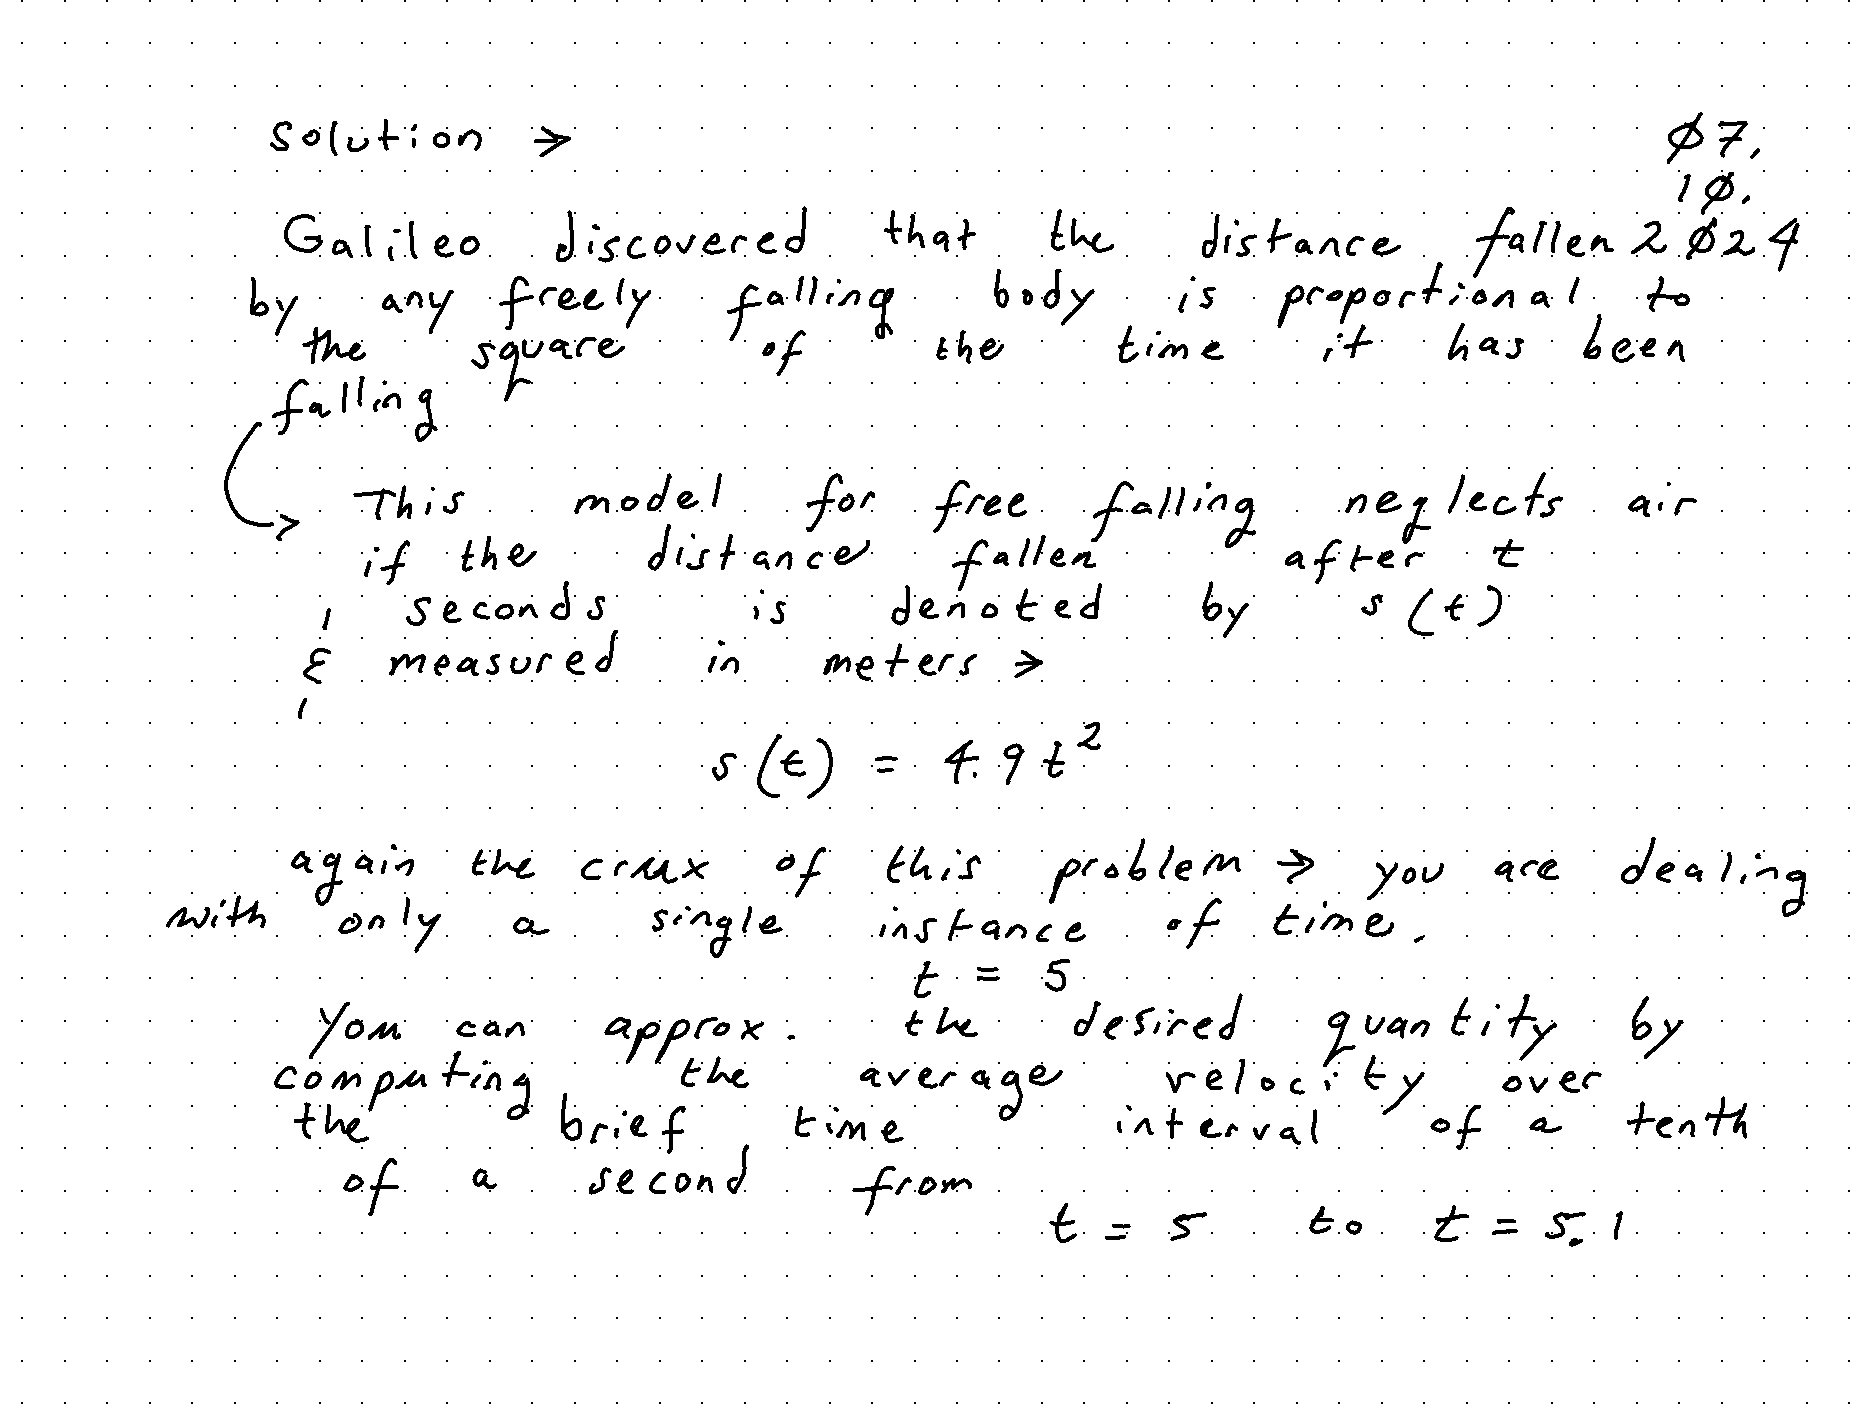 Solution →
Ø7.
1Ø.
2Ø24
Galileo discovered that the distance fallen
by any freely falling body is proportional to
the square of the time it has been
falling
This model for free falling neglects air
if the distance fallen after t
seconds is denoted by s(t)
& measured in meters →
s(t) = 4.9t²
again the crux of this problem → you are dealing
with only a single instance of time.
t = 5
You can approx. the desired quantity by
computing the average velocity over
the brief time interval of a tenth
of a second from
t = 5 to t = 5.1